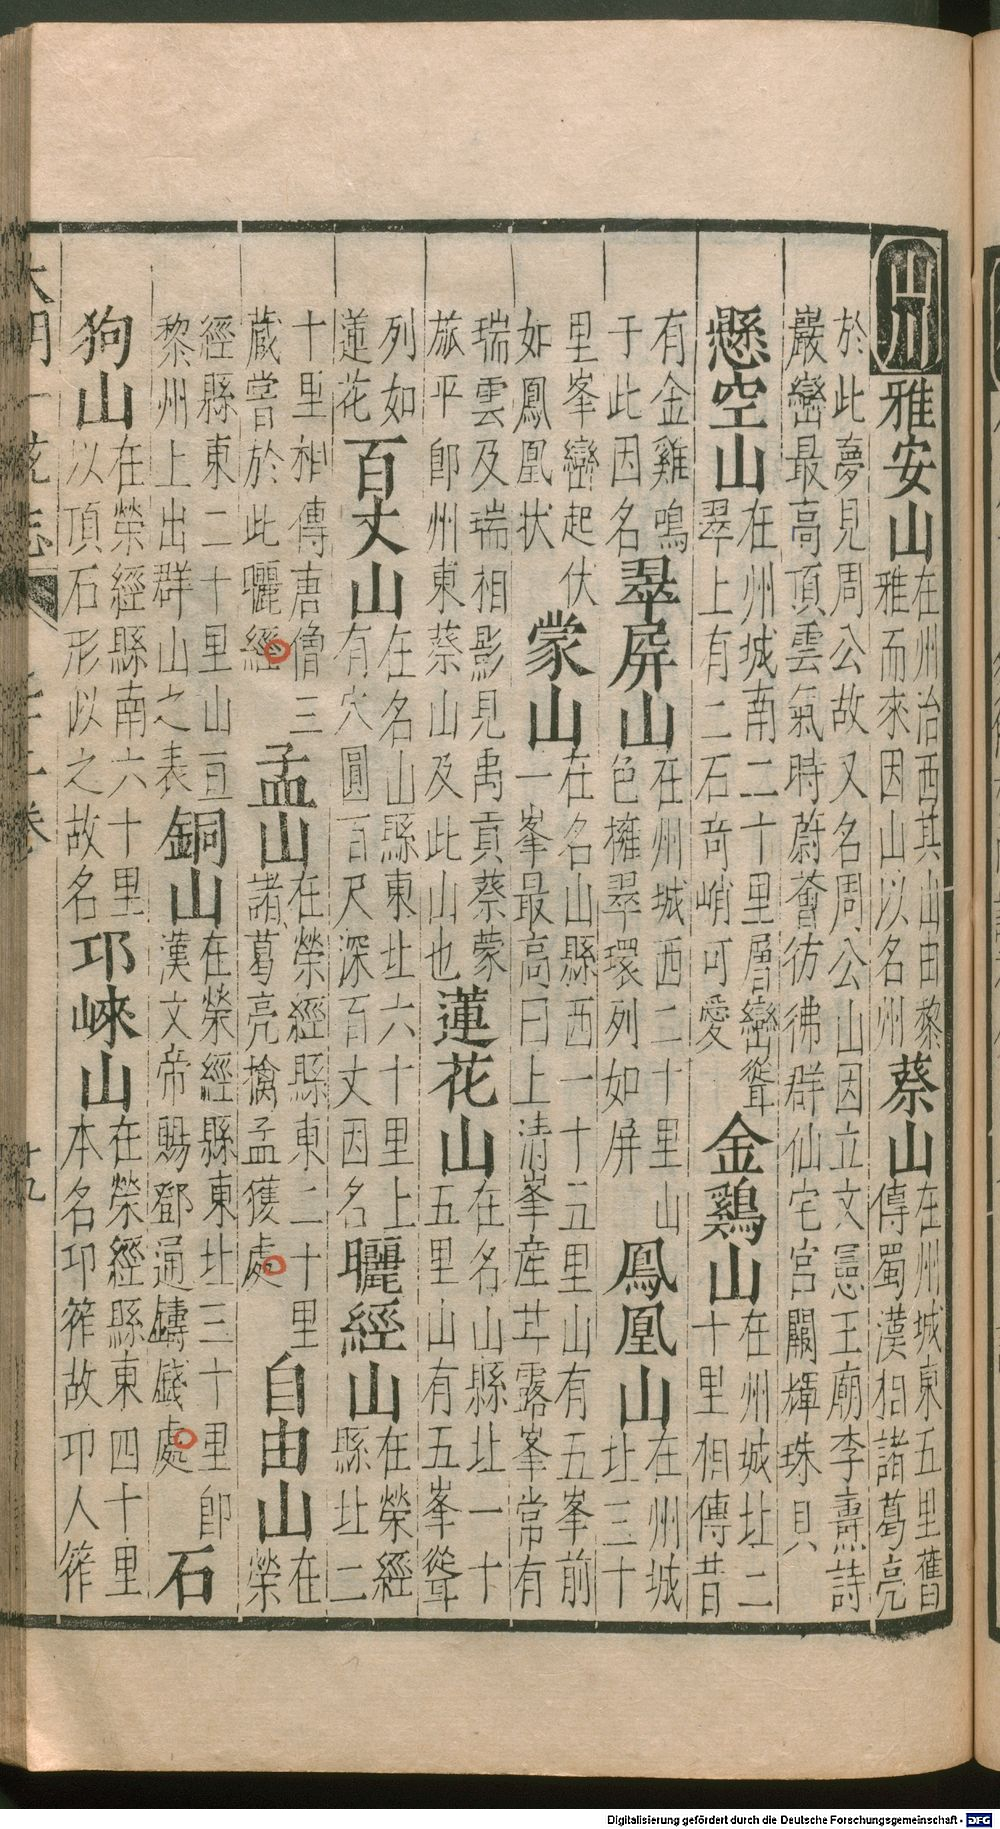 山川 雅安山 在州治西其山由黎雅而來因山以名州 蔡山 在州城東五里舊傳蜀漢相諸葛亮
於此夢見周公故又名周公山因立文憲王廟李燾詩巖巒最高頂雲氣時蔚薈彷彿群仙宅宮闕輝珠貝
懸空山 在州城南二十里層巒聳翠上有二石奇峭可愛 金鷄山 在州城北二十里相傳昔
有金雞鳴于此因名 翠屏山 在州城西二十里山色擁翠環列如屏 鳳凰山 在州城北三十
里峯巒起伏如鳳凰状 蒙山 在名山縣西一十五里山有五峯前一峯最高曰上清峯産甘露峯常有
瑞雲及瑞相影見禹貢蔡蒙旅平即州東蔡山及此山也 蓮花山 在名山縣北一十五里山有五峯聳
列如蓮花 百丈山 在名山縣東北六十里上有穴圓百尺深百丈因名 曬經山 在榮經縣北二
十里相傳唐僧三藏嘗於此曬經 孟山 在榮經縣東二十里諸葛亮擒孟獲處 自由山 在榮
經縣東二十里山亘黎州上出群山之表 銅山 在榮經縣東北三十里即漢文帝賜鄧通鑄錢處 石
狗山 在榮經縣南六十里以頂石形似之故名 邛崍山 在榮經縣東四十里本名邛筰故邛人筰
大明一 志 卷 十九
Digitalisierung gefördert durch die Deutsche Forschungsgemeinschaft - DFG